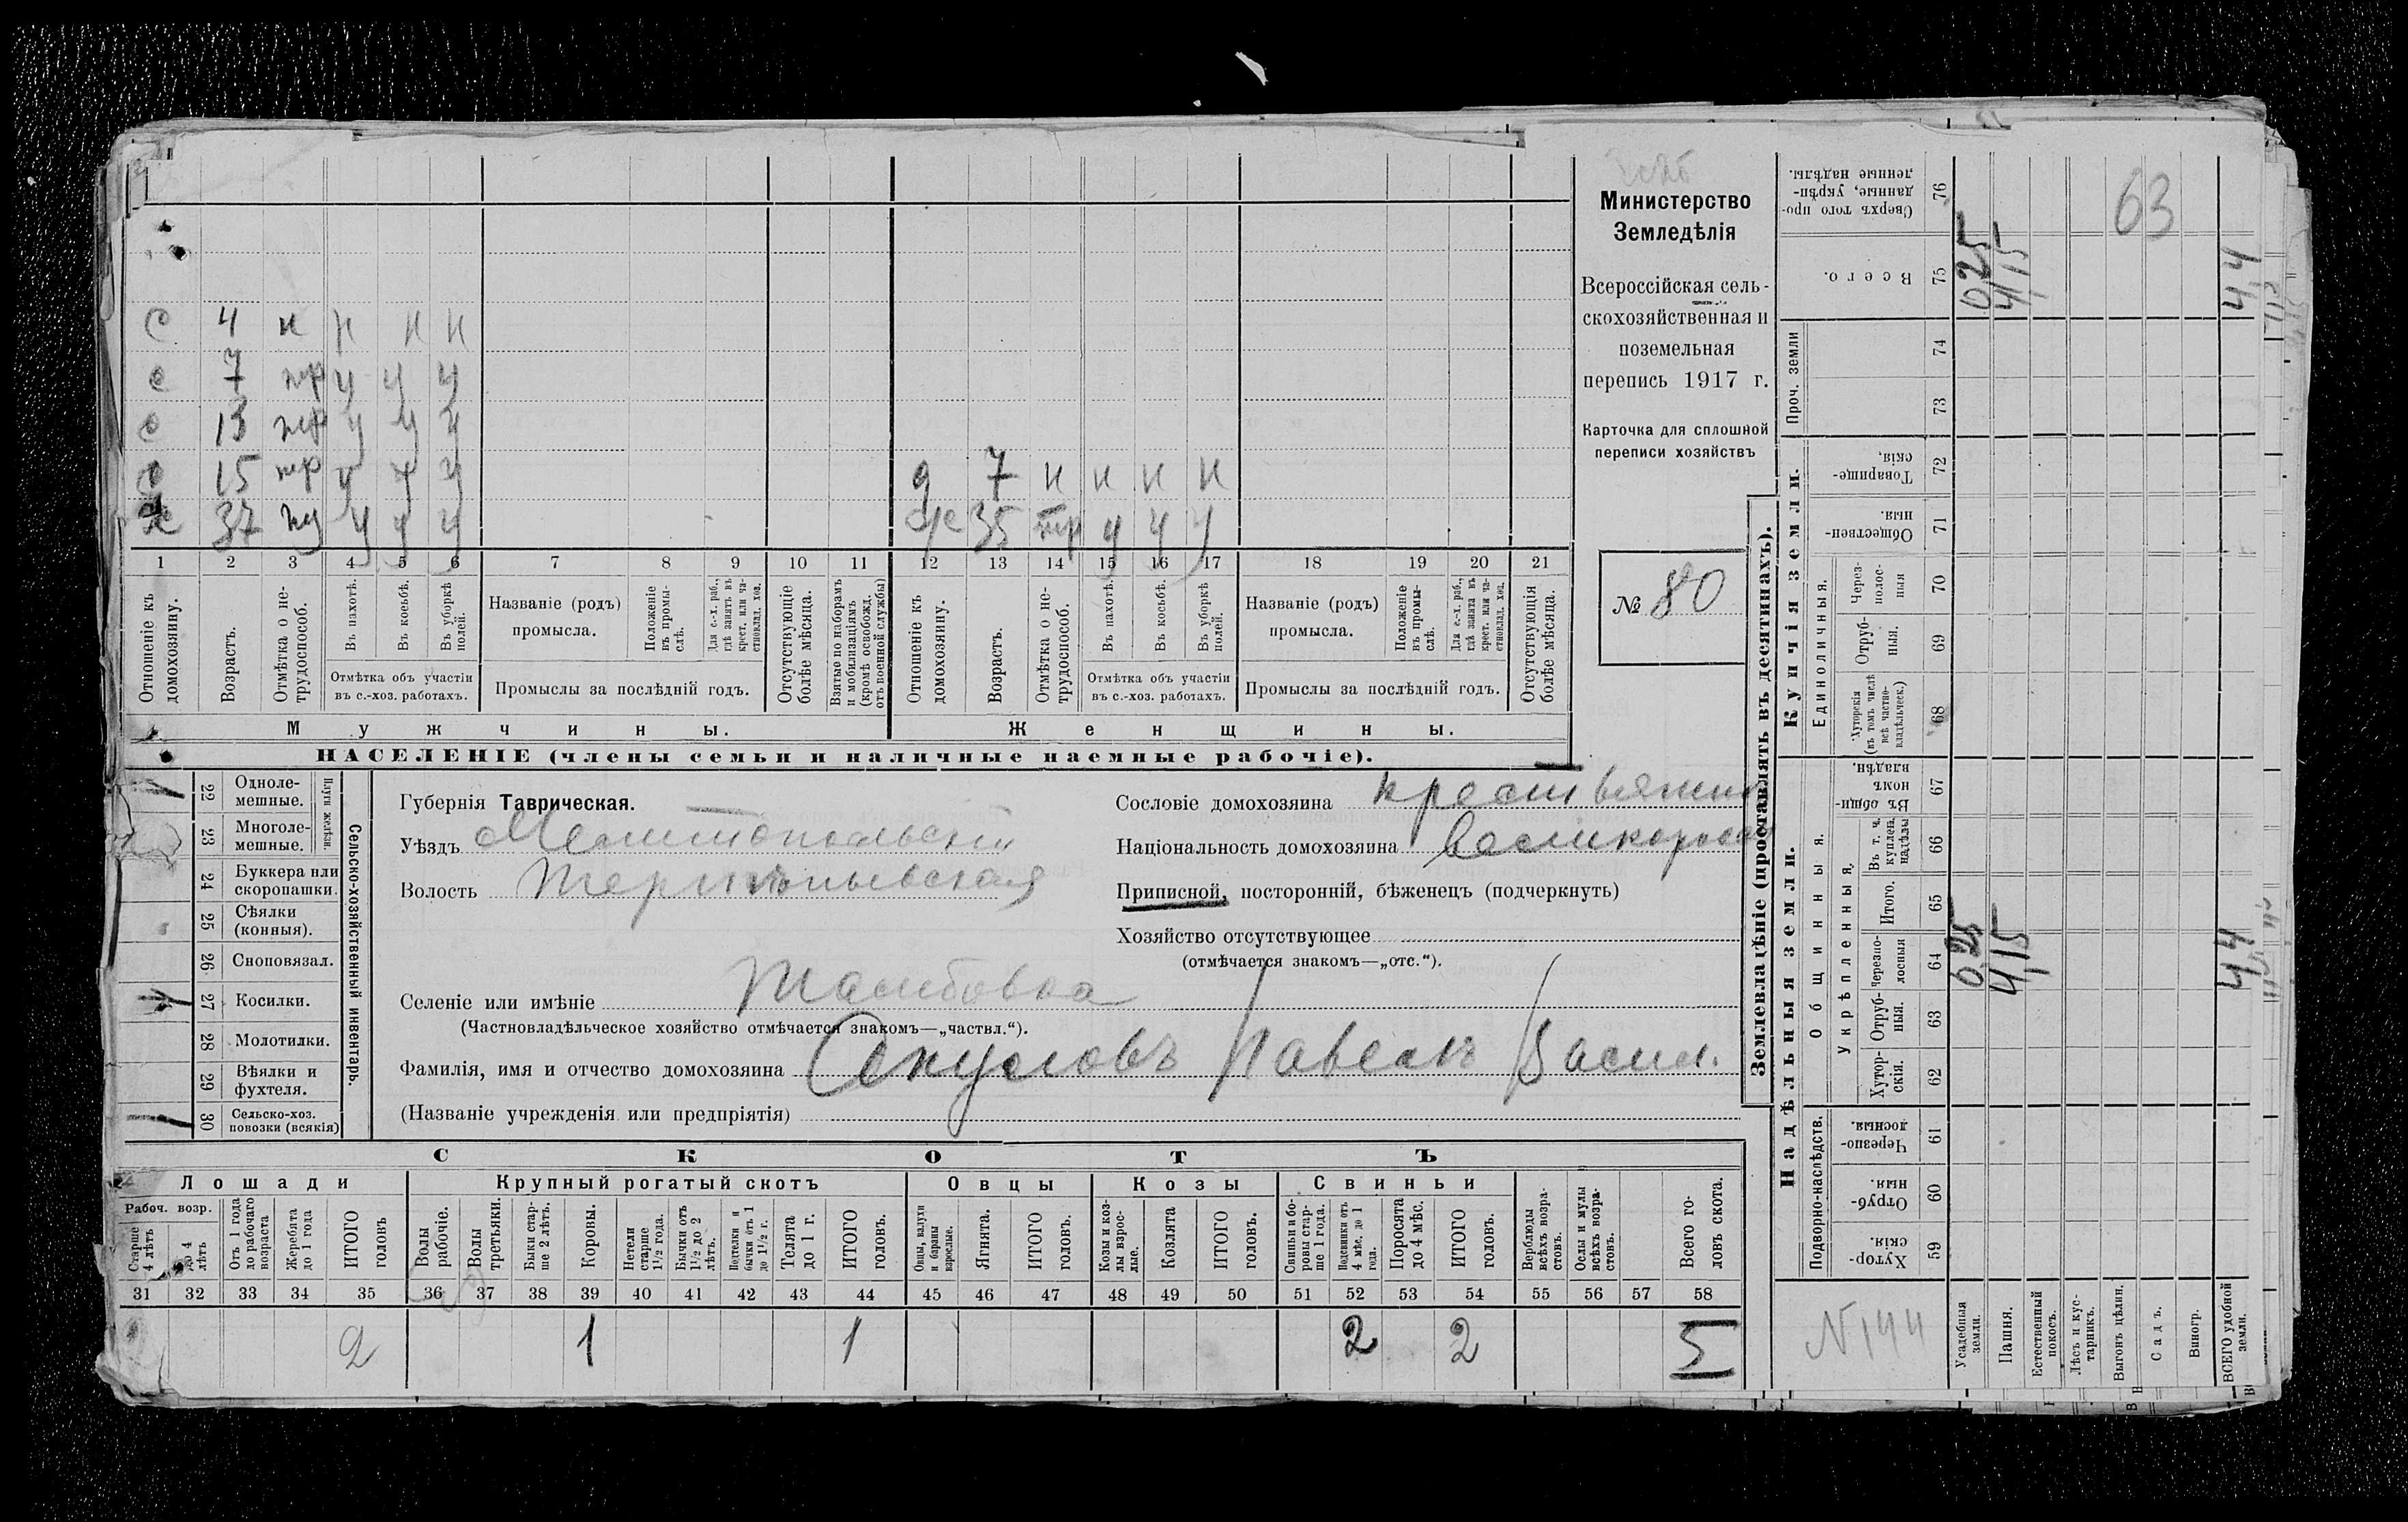 Министерство
Земледѣлія
Всероссійская сель-
скохозяйственная и
поземельная
перепись 1917 г.
Карточка для сплошной
переписи хозяйствъ
№ 80
63
с 4 н н н н
с 7 нр у у у
с 13 нр у у у
с 15 нр у у у
д 7 н н н н
х 37 у у у
ж 35 нр у у у
1 2 3 4 5 6 7 8 9 10 11 12 13 14 15 16 17 18 19 20 21
Отношеніе къ домохозяину.
Возрастъ.
Отмѣтка о не-трудоспособ.
Въ пахотѣ.
Въ косьбѣ.
Въ уборкѣ полей.
Отмѣтка объ участіи въ с.-хоз. работахъ.
Названіе (родъ) промысла.
Положеніе въ промы-слѣ.
Для с.-х. раб., гдѣ занятъ въ крест. или ча-стновлад. хоз.
Промыслы за послѣдній годъ.
Отсутствующіе болѣе мѣсяца.
Взятые по наборамъ и мобилизаціямъ (кромѣ освобожд. отъ военной службы)
Отношеніе къ домохозяину.
Возрастъ.
Отмѣтка о не-трудоспособ.
Въ пахотѣ.
Въ косьбѣ.
Въ уборкѣ полей.
Отмѣтка объ участіи въ с.-хоз. работахъ.
Названіе (родъ) промысла.
Положеніе въ промы-слѣ.
Для с.-х. раб., гдѣ занята въ крест. или ча-стновлад. хоз.
Промыслы за послѣдній годъ.
Отсутствующія болѣе мѣсяца.
Мужчины.
Женщины.
НАСЕЛЕНІЕ (члены семьи и наличные наемные рабочіе).
Сельско-хозяйственный инвентарь.
Плуги желѣзн.
22 Одноле-мешные.
23 Многоле-мешные.
24 Буккера или скоропашки.
25 Сѣялки (конныя).
26 Сноповязал.
27 Косилки.
28 Молотилки.
29 Вѣялки и фухтеля.
30 Сельско-хоз. повозки (всякія)
Губернія Таврическая.
Уѣздъ Мелитопольскій
Волость
Селеніе или имѣніе Тамбовка
(Частновладѣльческое хозяйство отмѣчается знакомъ—„частвл.“).
Фамилія, имя и отчество домохозяина Окуловъ Павелъ Васил.
(Названіе учрежденія или предпріятія)
Сословіе домохозяина крестьянин
Національность домохозяина Великоросс
Приписной, посторонній, бѣженецъ (подчеркнуть)
Хозяйство отсутствующее
(отмѣчается знакомъ—„отс.“).
СКОТЪ
Лошади
Крупный рогатый скотъ
Овцы
Козы
Свиньи
Рабоч. возр.
Старше 4 лѣтъ
до 4 лѣтъ
Отъ 1 года до рабочаго возраста
Жеребята до 1 года
ИТОГО головъ
Волы рабочіе.
Волы третьяки.
Быки стар-ше 2 лѣтъ.
Коровы.
Нетели старше 1½ года.
Бычки отъ 1½ до 2 лѣтъ.
Подтелки и бычки отъ 1 до 1½ г.
Телята до 1 г.
ИТОГО головъ.
Овцы, валухи и бараны взрослые.
Ягнята.
ИТОГО головъ.
Козы и коз-лы взрос-лые.
Козлята
ИТОГО головъ.
Свиньи и бо-ровы стар-ше 1 года.
Подсвинки отъ 4 мѣс. до 1 года.
Поросята до 4 мѣс.
ИТОГО головъ.
Верблюды всѣхъ возра-стовъ.
Ослы и мулы всѣхъ возра-стовъ.
Всего го-ловъ скота.
31 32 33 34 35 36 37 38 39 40 41 42 43 44 45 46 47 48 49 50 51 52 53 54 55 56 57 58
2 1 1 2 2 5
Землевладѣніе (проставлять въ десятинахъ).
Надѣльныя земли.
Купчія земли.
Проч. земли
Подворно-наслѣдств.
Общинныя.
Укрѣпленныя.
Единоличныя.
Хутор-скія. 59
Отруб-ныя. 60
Черезпо-лосныя. 61
Хутор-скія. 62
Отруб-ныя. 63
Черезпо-лосныя 64
Итого. 65
Въ т. ч. куплен. надѣлы 66
Въ общин-номъ владѣн. 67
Хуторскія (въ томъ числѣ всѣ частно-владѣльческ.) 68
Отруб-ныя. 69
Через-полос-ныя 70
Обществен-ныя. 71
Товарище-скія. 72
73
74
Всего. 75
Сверхъ того про-данные, укрѣп-ленные надѣлы. 76
Усадебныя земли. 0,25 0,25
Пашня. 4,15 4,15
Естественный покосъ.
Лѣсъ и кус-тарникъ.
Выгонъ цѣлин.
Садъ.
Виногр.
ВСЕГО удобной земли. 4,4 4,4
N 144